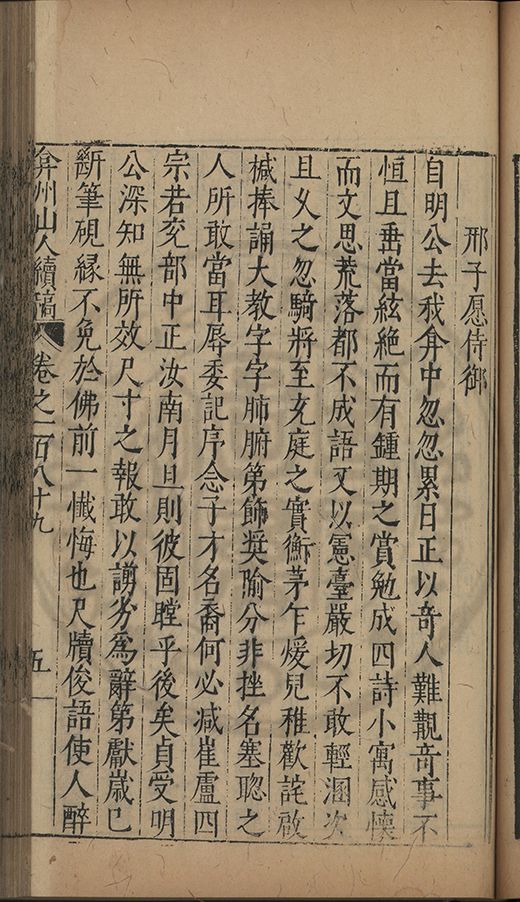 邢子愿侍御
自明公去我弇中忽忽累日正以奇人難覯奇事不
恒且垂當絃絶而有鍾期之賞勉成四詩小寓感懷
而文思荒落都不成語又以憲臺嚴切不敢輕溷次
且乆之忽騎將至充庭之實衡茅乍煖兒稚歡詫啟
械捧誦大教字字肺腑第飾奬隃分非挫名塞聦之
人所敢當耳辱委記序念子才名裔何必减崔盧四
宗若兖部中正汝南月旦則彼固瞠乎後矣貞受明
公深知無所效尺寸之報敢以謭劣爲辭第獻歲已
斷筆硯緣不免於佛前一懺悔也尺牘俊語使人醉
弇州山人續稿 卷之一百八十九 五